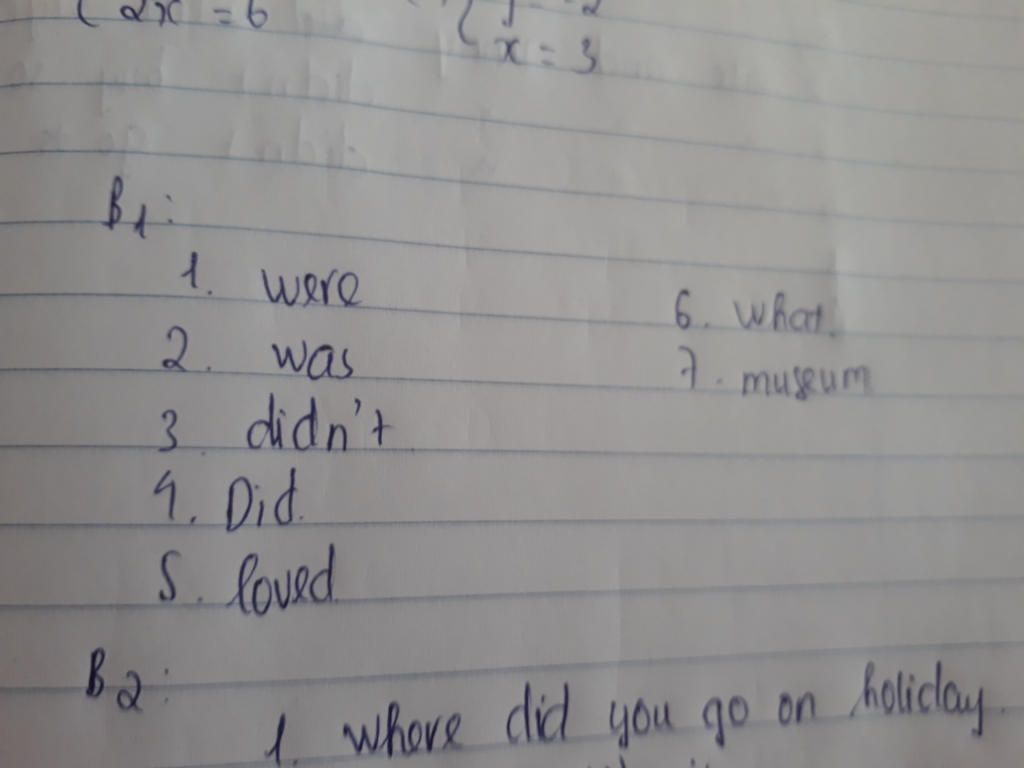 { 2x = 6
x = 3
B1:
1. were
2. was
3. didn't
4. Did.
5. loved.
6. what.
7. museum
B2:
1. where did you go on holiday.